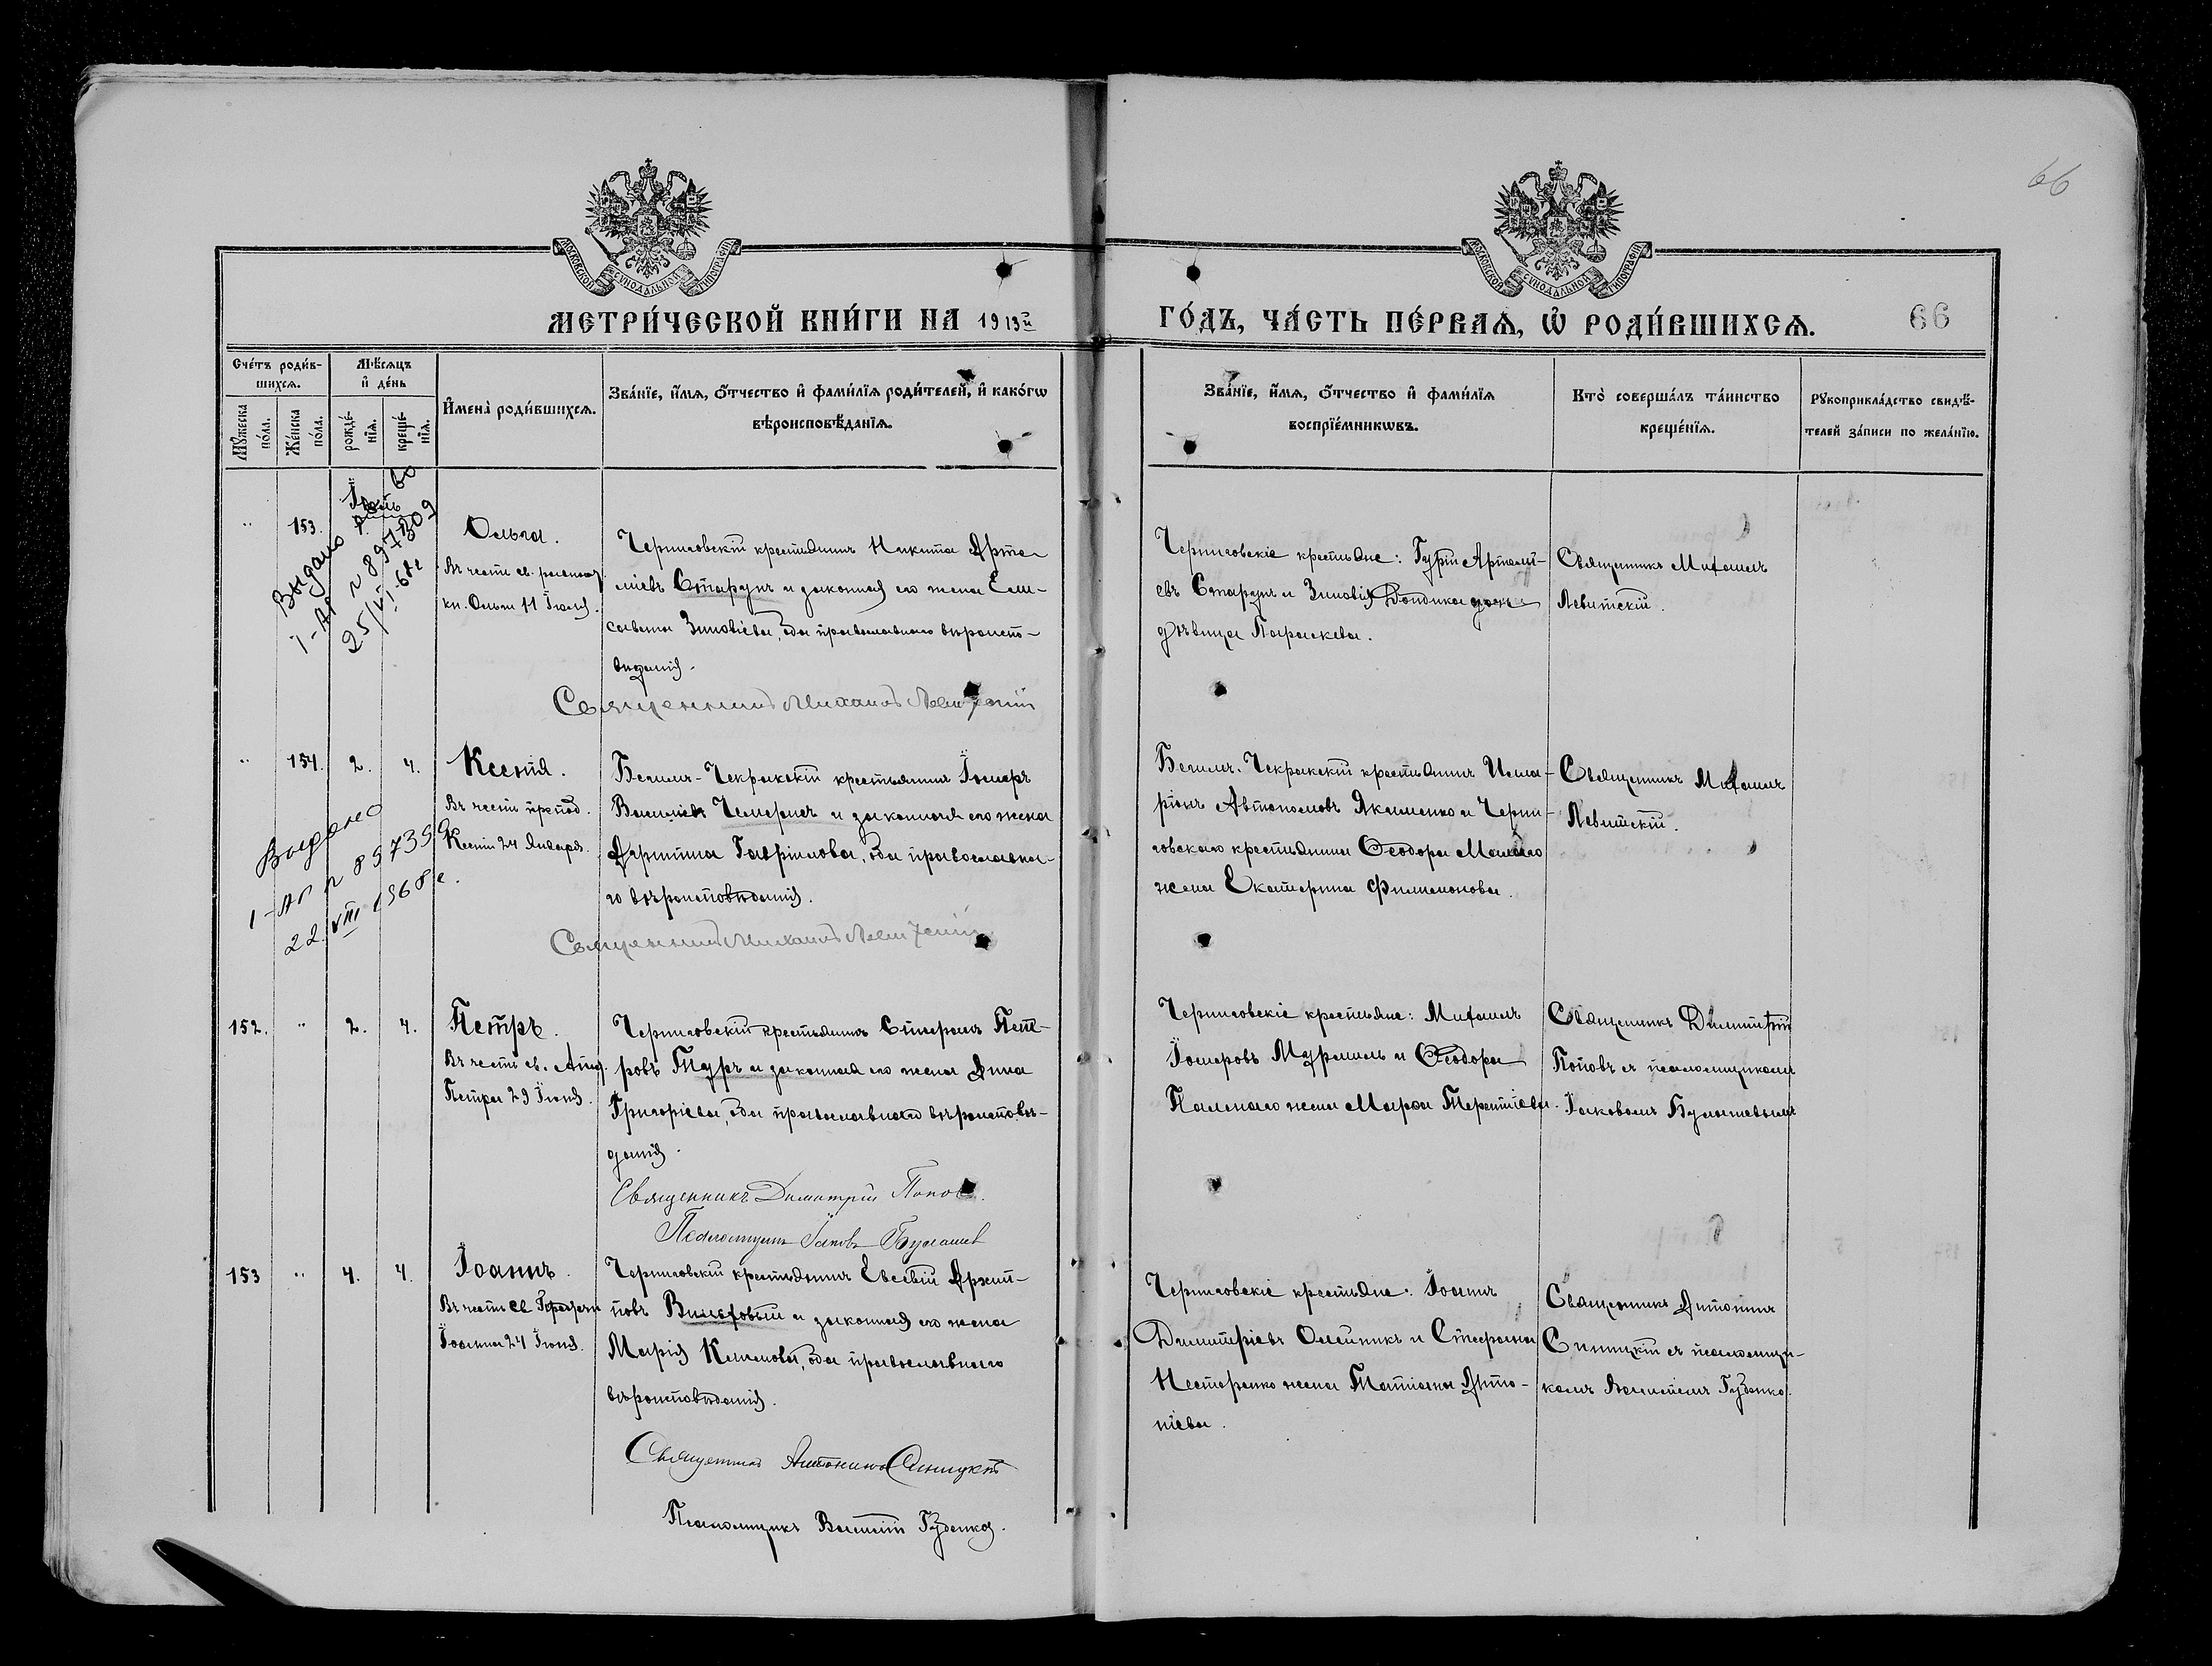 66
МОСКОВСКОЙ СѴНОДАЛЬНОЙ ТИПОГРАФІИ
МОСКОВСКОЙ СѴНОДАЛЬНОЙ ТИПОГРАФІИ
МЕТРИ́ЧЕСКОЙ КНИ́ГИ НА 1913й
ГО́ДЪ, ЧА́СТЬ ПЕ́РВАѦ, Ѡ҆ РОДИ́ВШИХСѦ.
66
Сче́тъ роди́в-
шихсѧ.
Мѣ́сѧцъ
и҆ де́нь
Мꙋ́жеска
по́ла.
Же́нска
по́ла.
рожде́-
нїѧ.
креще́-
нїѧ.
И҆мена̀ роди́вшихсѧ.
Зва́нїе, и҆́мѧ, ѻ҆́тчество и҆ фами́лїѧ роди́телей, и҆ како́гѡ
вѣроисповѣ́данїѧ.
Зва́нїе, и҆́мѧ, ѻ҆́тчество и҆ фами́лїѧ
воспрїе́мникѡвъ.
Кто̀ соверша́лъ та́инство
креще́нїѧ.
Рꙋкоприкла́дство свидѣ́-
телей за́писи по жела́нїю.
Іюль
153.
Ольга.
Въ честь св. равноап.
кн. Ольги 11 Іюля.
Выдано
25/VI-68г
Черниговскій крестьянинъ Никита Арте-
міевъ Старунъ и законная его жена Ели-
савета Зиновіева, оба православнаго вѣроиспо-
вѣданія.
Священникъ Михаилъ Левитскій
Черниговскіе крестьяне: Гурій Артемі-
евъ Старунъ и Зиновія
дѣвица Параскева.
Священникъ Михаилъ
Левитскій.
154. 2. 4.
Ксенія.
Въ честь препод.
Ксеніи 24 Января.
Выдано
22 VIII 1968г.
Бегимъ-Чекракскій крестьянинъ Іосифъ
Василіевъ Чемерисъ и законная его жена
Агрипина Гавріилова, оба православна-
го вѣроисповѣданія.
Священникъ Михаилъ Левитскій
Бегимъ-Чекракскій крестьянинъ Ила-
ріонъ Автономовъ Якименко и Черни-
говскаго крестьянина Ѳеодора
жена Екатерина Филимонова.
Священникъ Михаилъ
Левитскій.
152. 2. 4.
Петръ.
Въ честь св. Апос.
Петра 29 Іюня.
Черниговскій крестьянинъ Стефанъ Пет-
ровъ Туръ и законная его жена Анна
Григоріева, оба православнаго вѣроисповѣ-
данія.
Священникъ Димитрій Поповъ.
Псаломщикъ Іаковъ Булашев
Черниговскіе крестьяне: Михаилъ
Іосифовъ и Ѳеодора
жена Марѳа Терентіева.
Священникъ Димитрій
Поповъ съ псаломщикомъ
Іаковомъ Булашевымъ
153 4. 4.
Іоаннъ.
Въ честь св. Предтечи
Іоанна 24 Іюня.
Черниговскій крестьянинъ Евсевій Архип-
повъ и законная его жена
Марія Климова, оба православнаго
вѣроисповѣданія.
Священникъ Антонинъ Синицкій
Псаломщикъ Василій Гузенко.
Черниговскіе крестьяне: Іоаннъ
Димитріевъ Олейникъ и Стефана
Нестеренко жена Татіана Анто-
ніева.
Священникъ Антонинъ
Синицкій съ псаломщи-
комъ Василіемъ Гузенко.